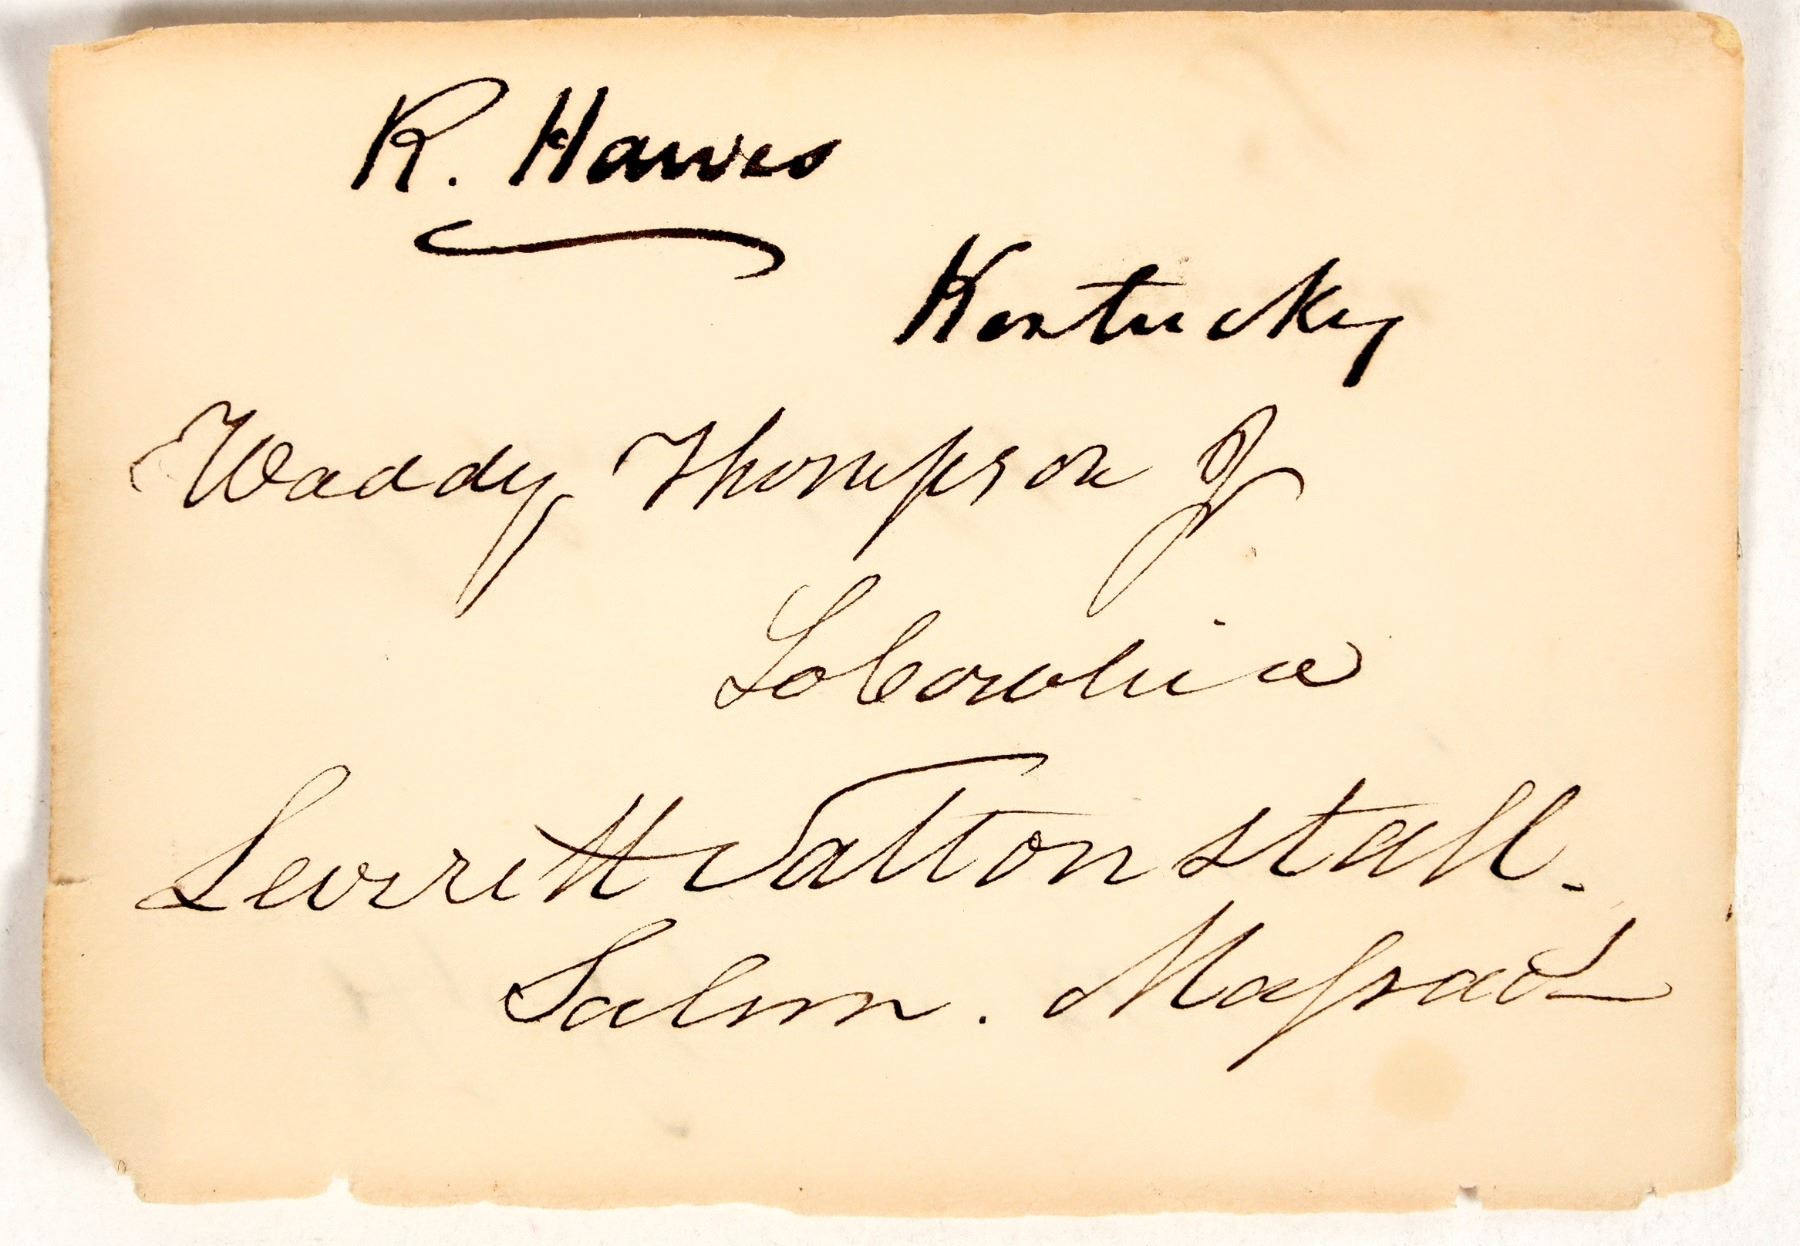 R. Hawes
Kentucky
Waddy Thompson Jr
So Carolina
Leverett Saltonstall.
Salem. Massach